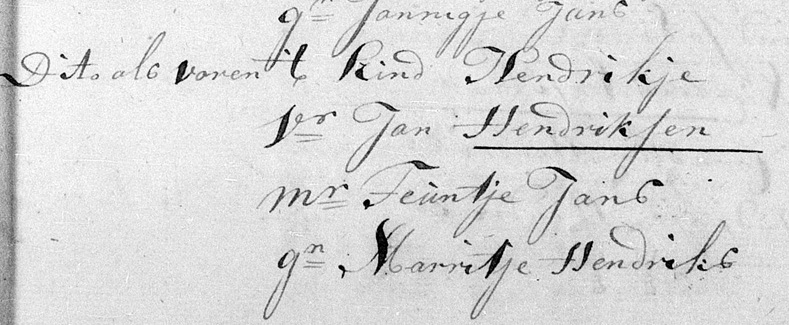 gn Jannigje Jans
Dito als voren 't kind Hendrikje
vr Jan Hendriksen
mr Teuntje Jans
gn Marritje Hendriks